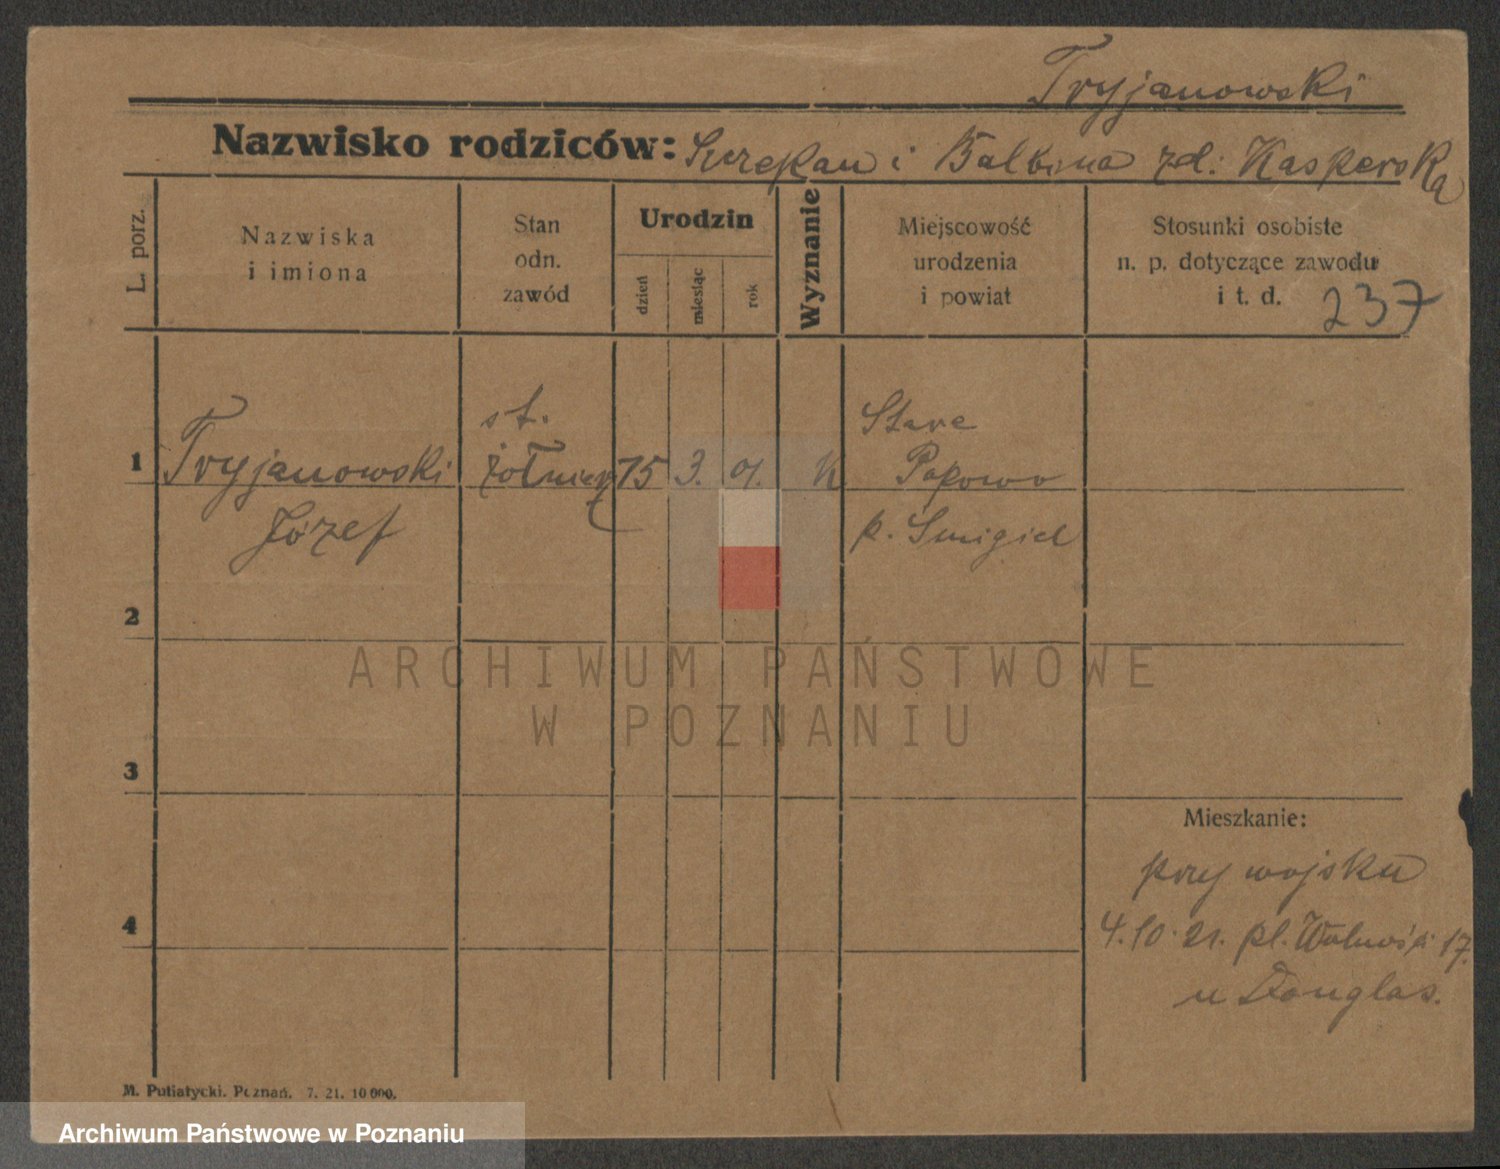 Tryjanowski
Nazwisko rodziców: Szczepan i Balbina zd: Kasperska
L. porz.
Nazwiska
i imiona
Stan
odn.
zawód
Urodzin
dzień
miesiąc
rok
Wyznanie
Miejscowość
urodzenia
i powiat
Stosunki osobiste
n. p. dotyczące zawodu
i t. d.
237
1
Tryjanowski
Józef
st.
żołnierz
15
3.
01.
k
Stare
Popowo
p. Smigiel
2
3
4
Mieszkanie:
przy wojsku
4.10.21. pl. Wolności 17.
u Douglas.
M. Putiatycki. Poznań. 7. 21. 10 000.
ARCHIWUM PAŃSTWOWE
W POZNANIU
Archiwum Państwowe w Poznaniu